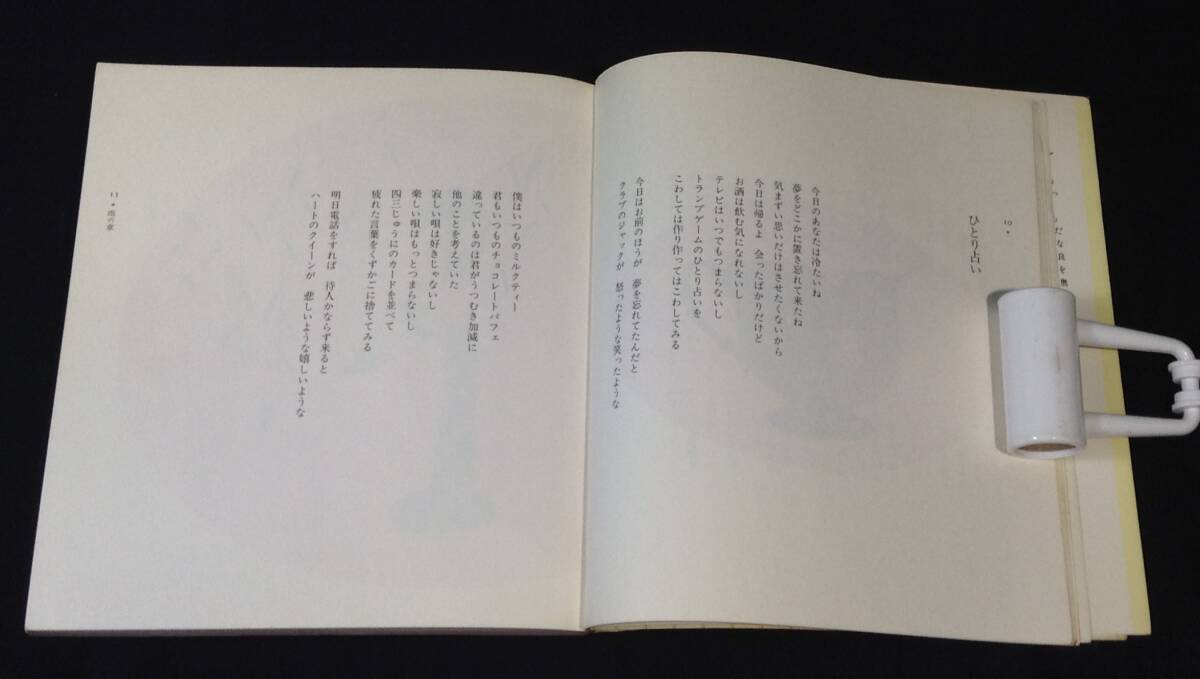 10 *
ひとり占い
今日のあなたは冷たいね
夢をどこかに置き忘れて来たね
気まずい思いだけはさせたくないから
今日は帰るよ 会ったばかりだけど
お酒は飲む気になれないし
テレビはいつでもつまらないし
トランプゲームのひとり占いを
こわしては作り作ってはこわしてみる
今日はお前のほうが 夢を忘れてたんだと
クラブのジャックが 怒ったような笑ったような
僕はいつものミルクティー
君もいつものチョコレートパフェ
違っているのは君がうつむき加減に
他のことを考えていた
寂しい唄は好きじゃないし
楽しい唄はもっとつまらないし
四三じゅうにのカードを並べて
疲れた言葉をくずかごに捨ててみる
明日電話をすれば 待人かならず来ると
ハートのクイーンが 悲しいような嬉しいような
11 * 雨の章